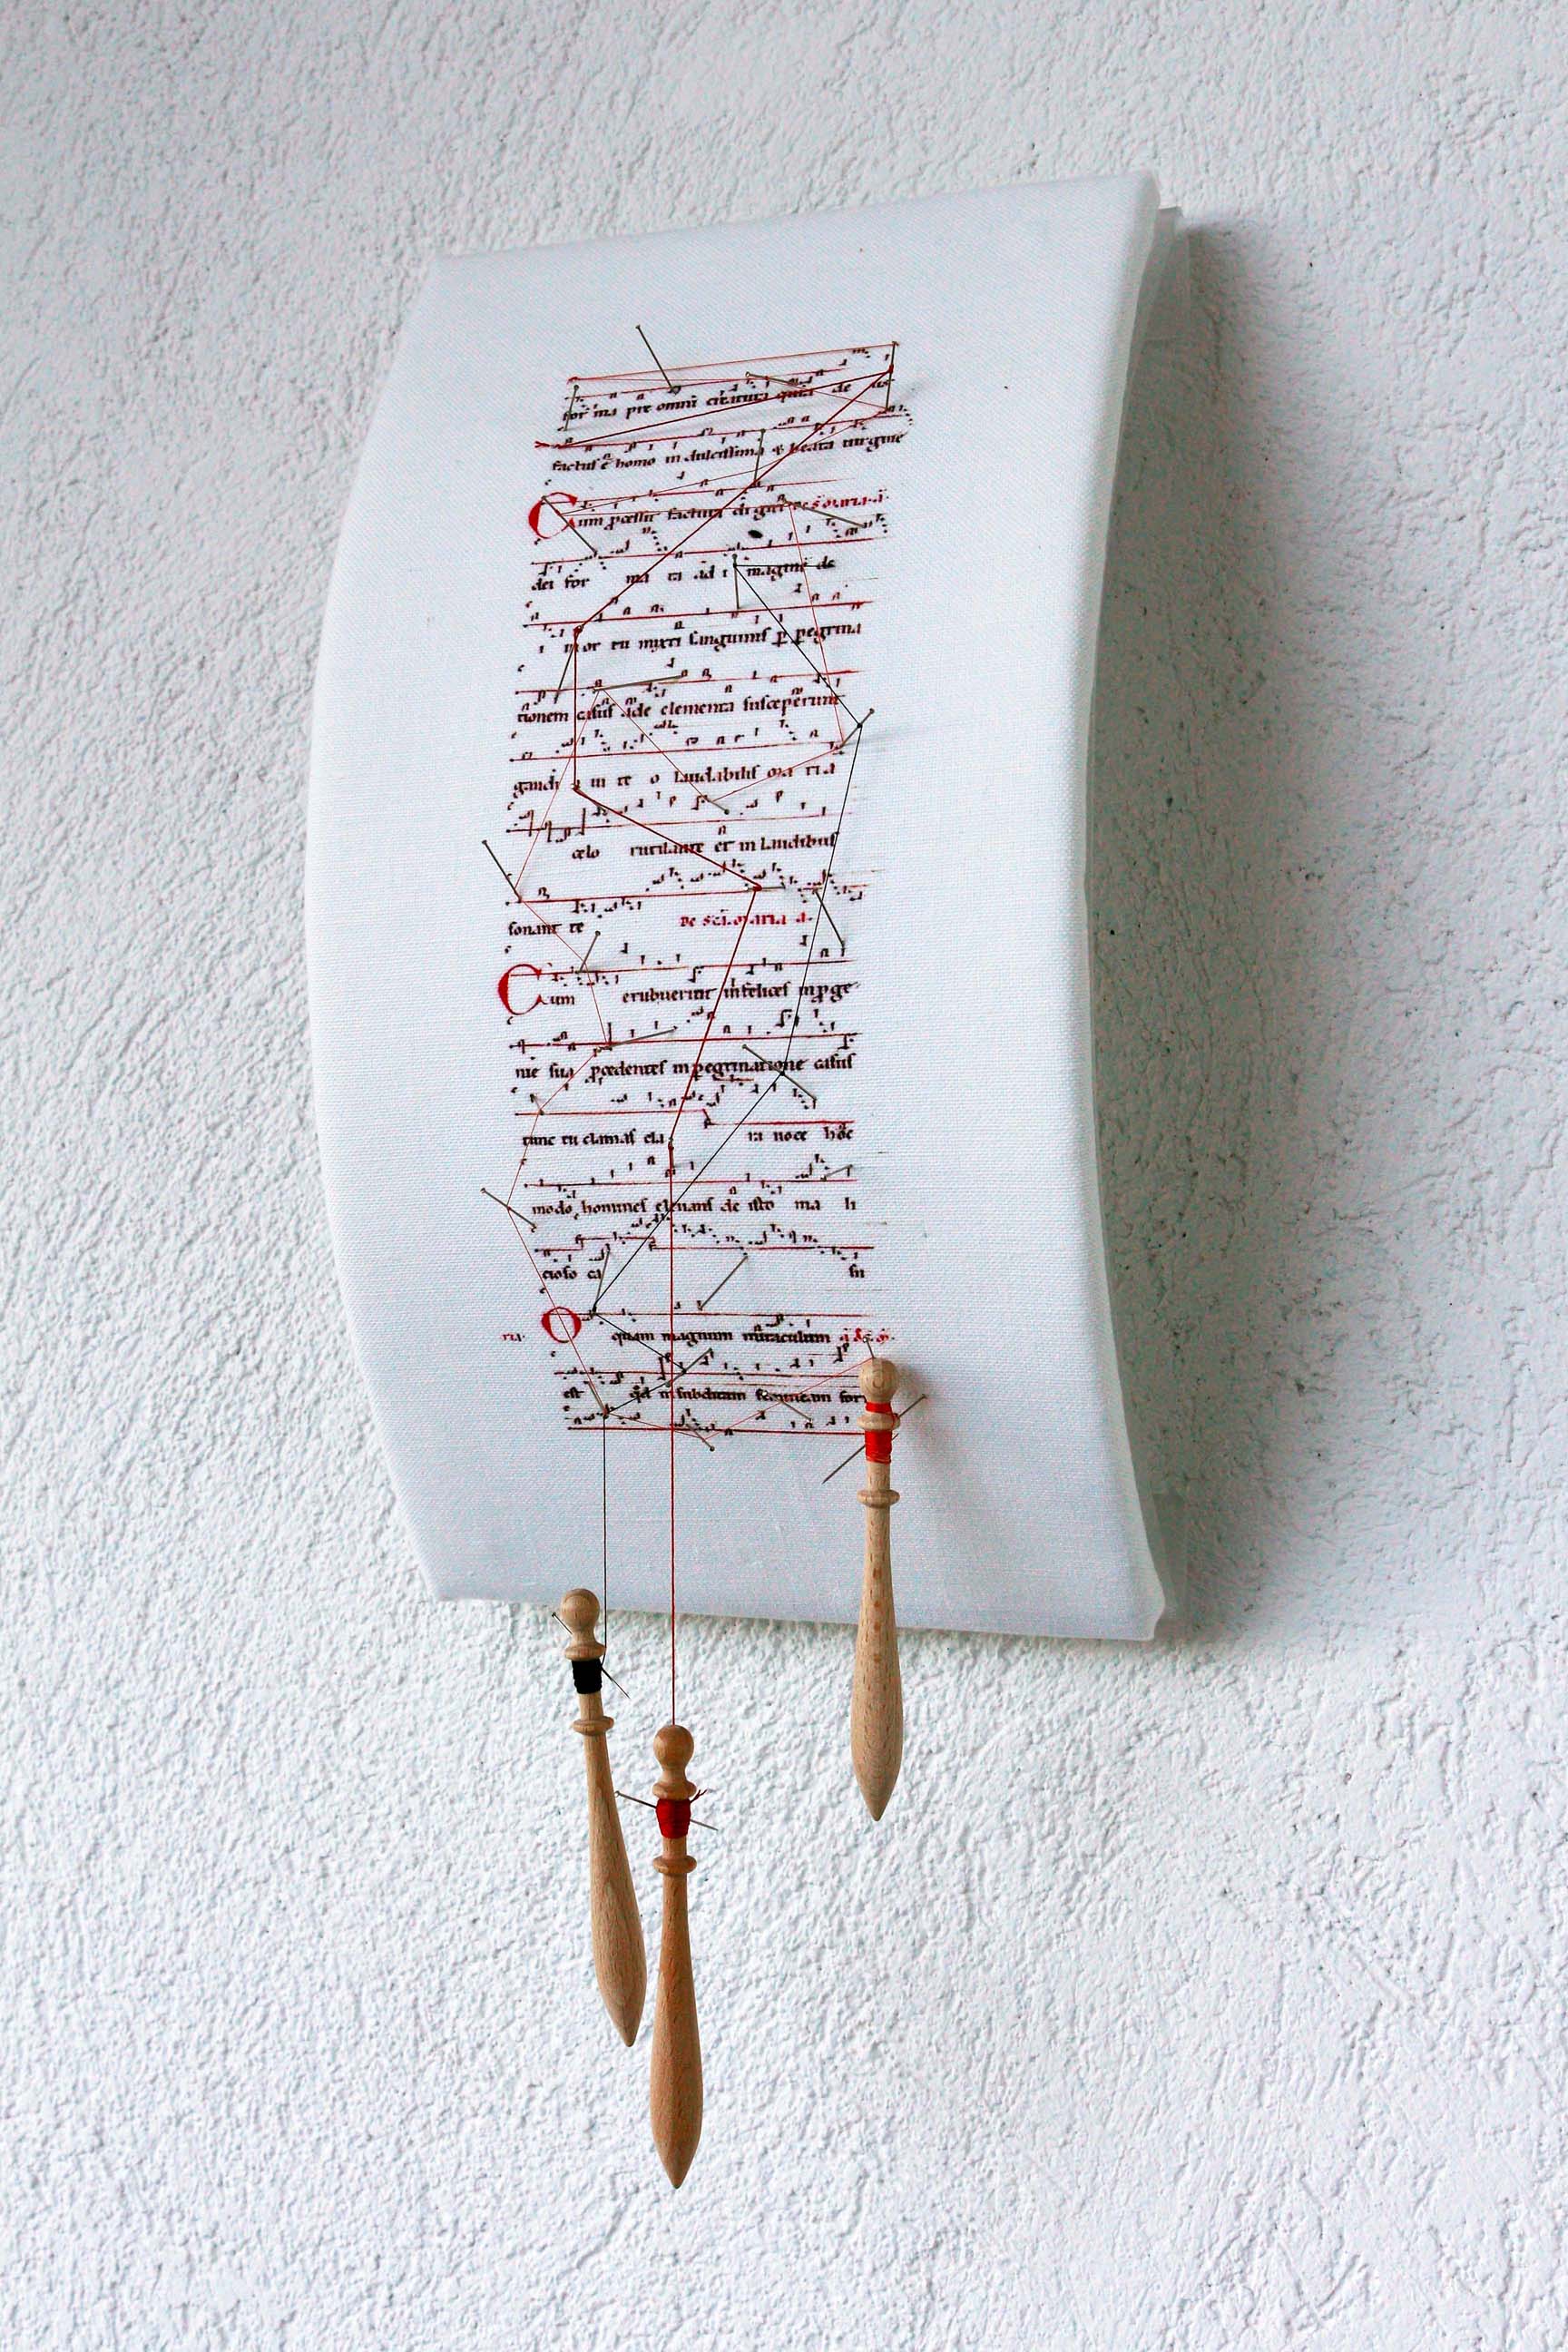 for ma pre omni creatura quia de us
factus ē homo in dulcissima & beata uirgine
Cum pcessit factura digiti de s maria a
dei for ma ta ad imaginē de
i in or tu mixti sanguinis p pegrina
tionem casus ade elementa susceperunt
gaudi um te o laudabilis ma ria
celo rutilante et in laudibus
sonant te De scā maria a.
Cum erubuerint infelices in pge
nie sua pcedentes in pegrinatione casus
tunc tu clamas cla ra uoce hoc
modo homines eleuans de isto ma li
cioso ca su
O quam magnum miraculum
ria.
est qd in subditam femineam for